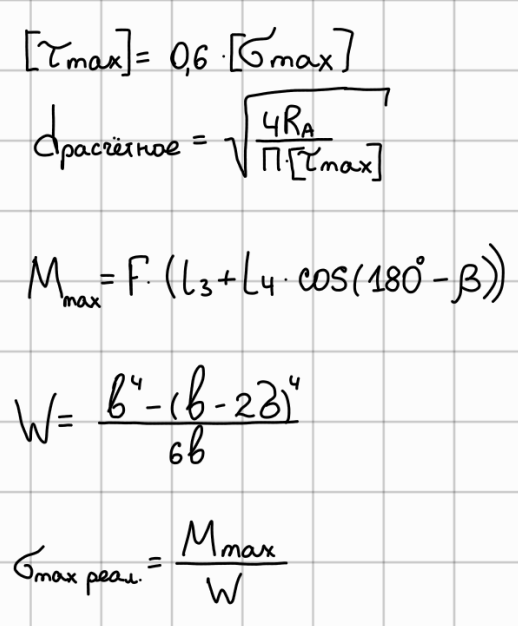 [τmax] = 0,6 · [σmax]
dрасчётное = √(4RA / П·[τmax])
Mmax = F · (L3 + L4 · cos(180° − β))
W = (b⁴ − (b − 2δ)⁴) / 6b
σmax реал. = Mmax / W